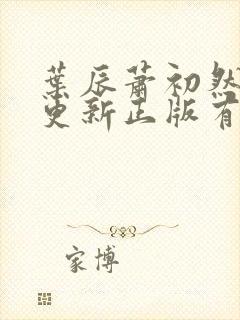 葉辰蕭初然
更新正版有
家博